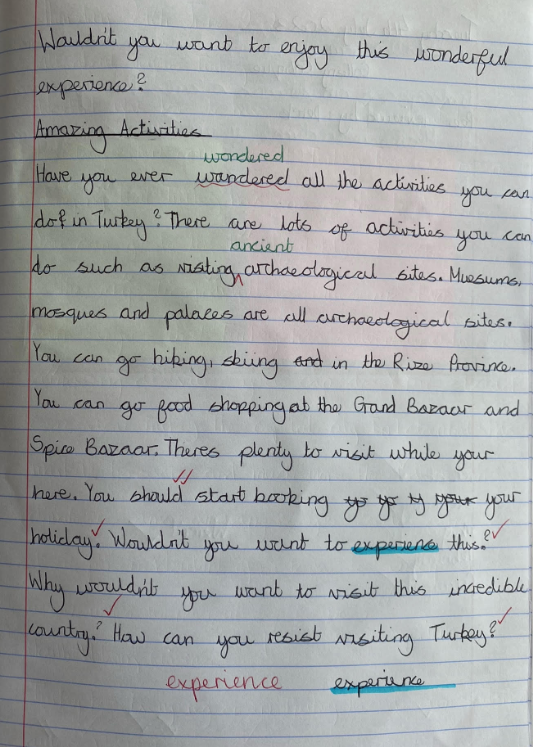 Wouldn't you want to enjoy this wonderful
experience?
Amazing Activities
wondered
Have you ever wandered all the activities you can
do? in Turkey? There are lots of activities you can
ancient
do such as visiting archaeological sites. Muesums,
mosques and palaces are all archaeological sites.
You can go hiking, skiing and in the Rize Province.
You can go food shopping at the Grand Bazaar and
Spice Bazaar. Theres plenty to visit while your
here. You should start booking your
holiday. Wouldn't you want to experiens this?
Why wouldn't you want to visit this incredible
country? How can you resist visiting Turkey?
experience experience